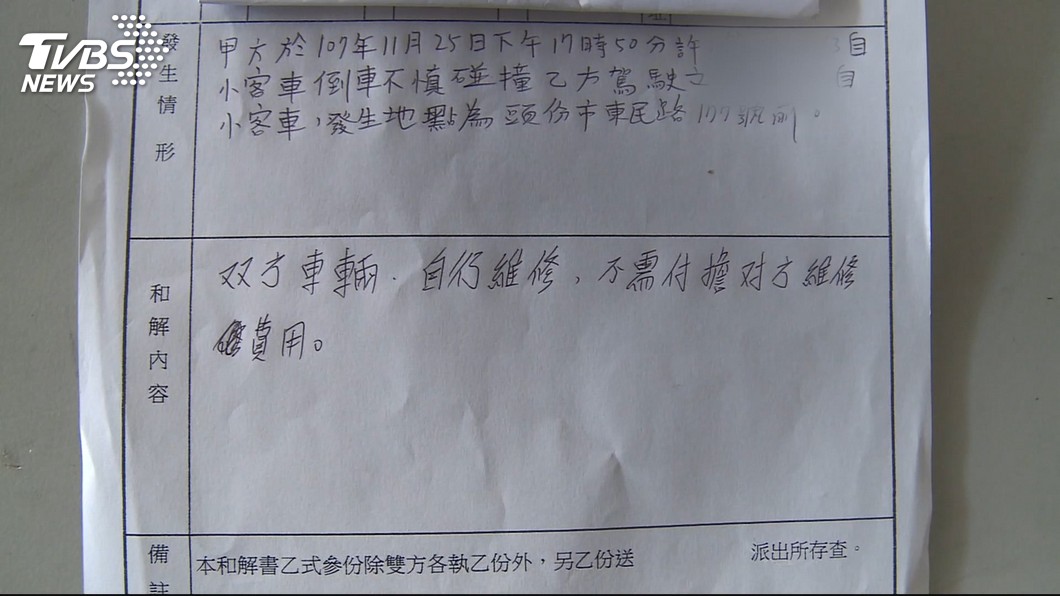 TVBS
NEWS
發生情形
甲方於107年11月25日下午17時50分許 自
小客車倒車不慎碰撞乙方駕駛之 自
小客車，發生地點為頭份市東民路 號前。
和解內容
双方車輛.自行維修，不需付擔对方維修
費用。
備註
本和解書乙式參份除雙方各執乙份外，另乙份送 派出所存查。